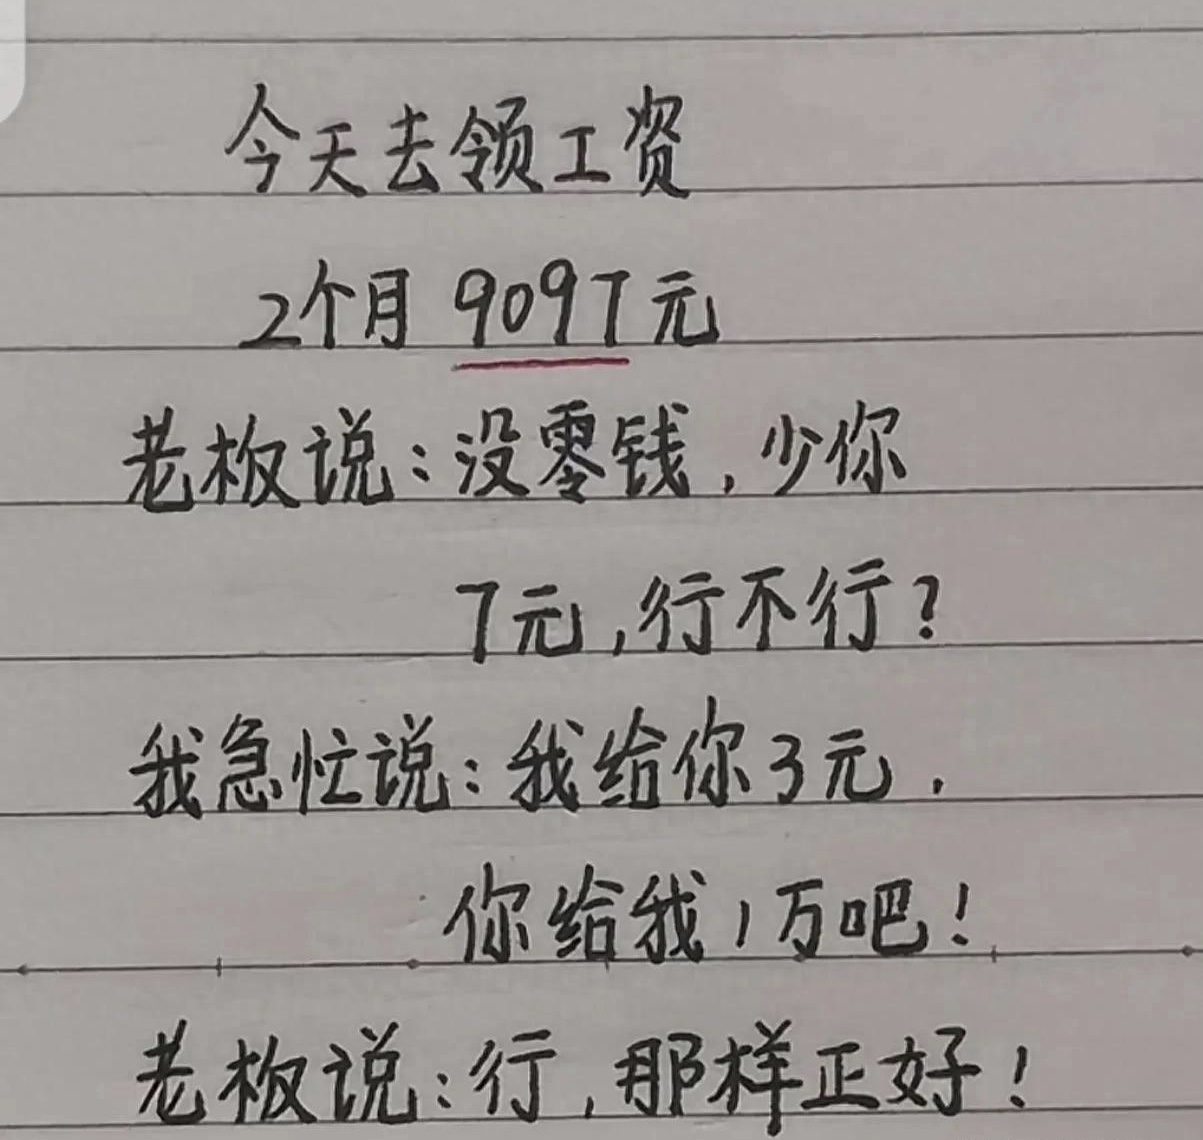 今天去领工资
2个月 9097元
老板说:没零钱,少你
7元,行不行?
我急忙说:我给你3元.
你给我1万吧!
老板说:行,那样正好!